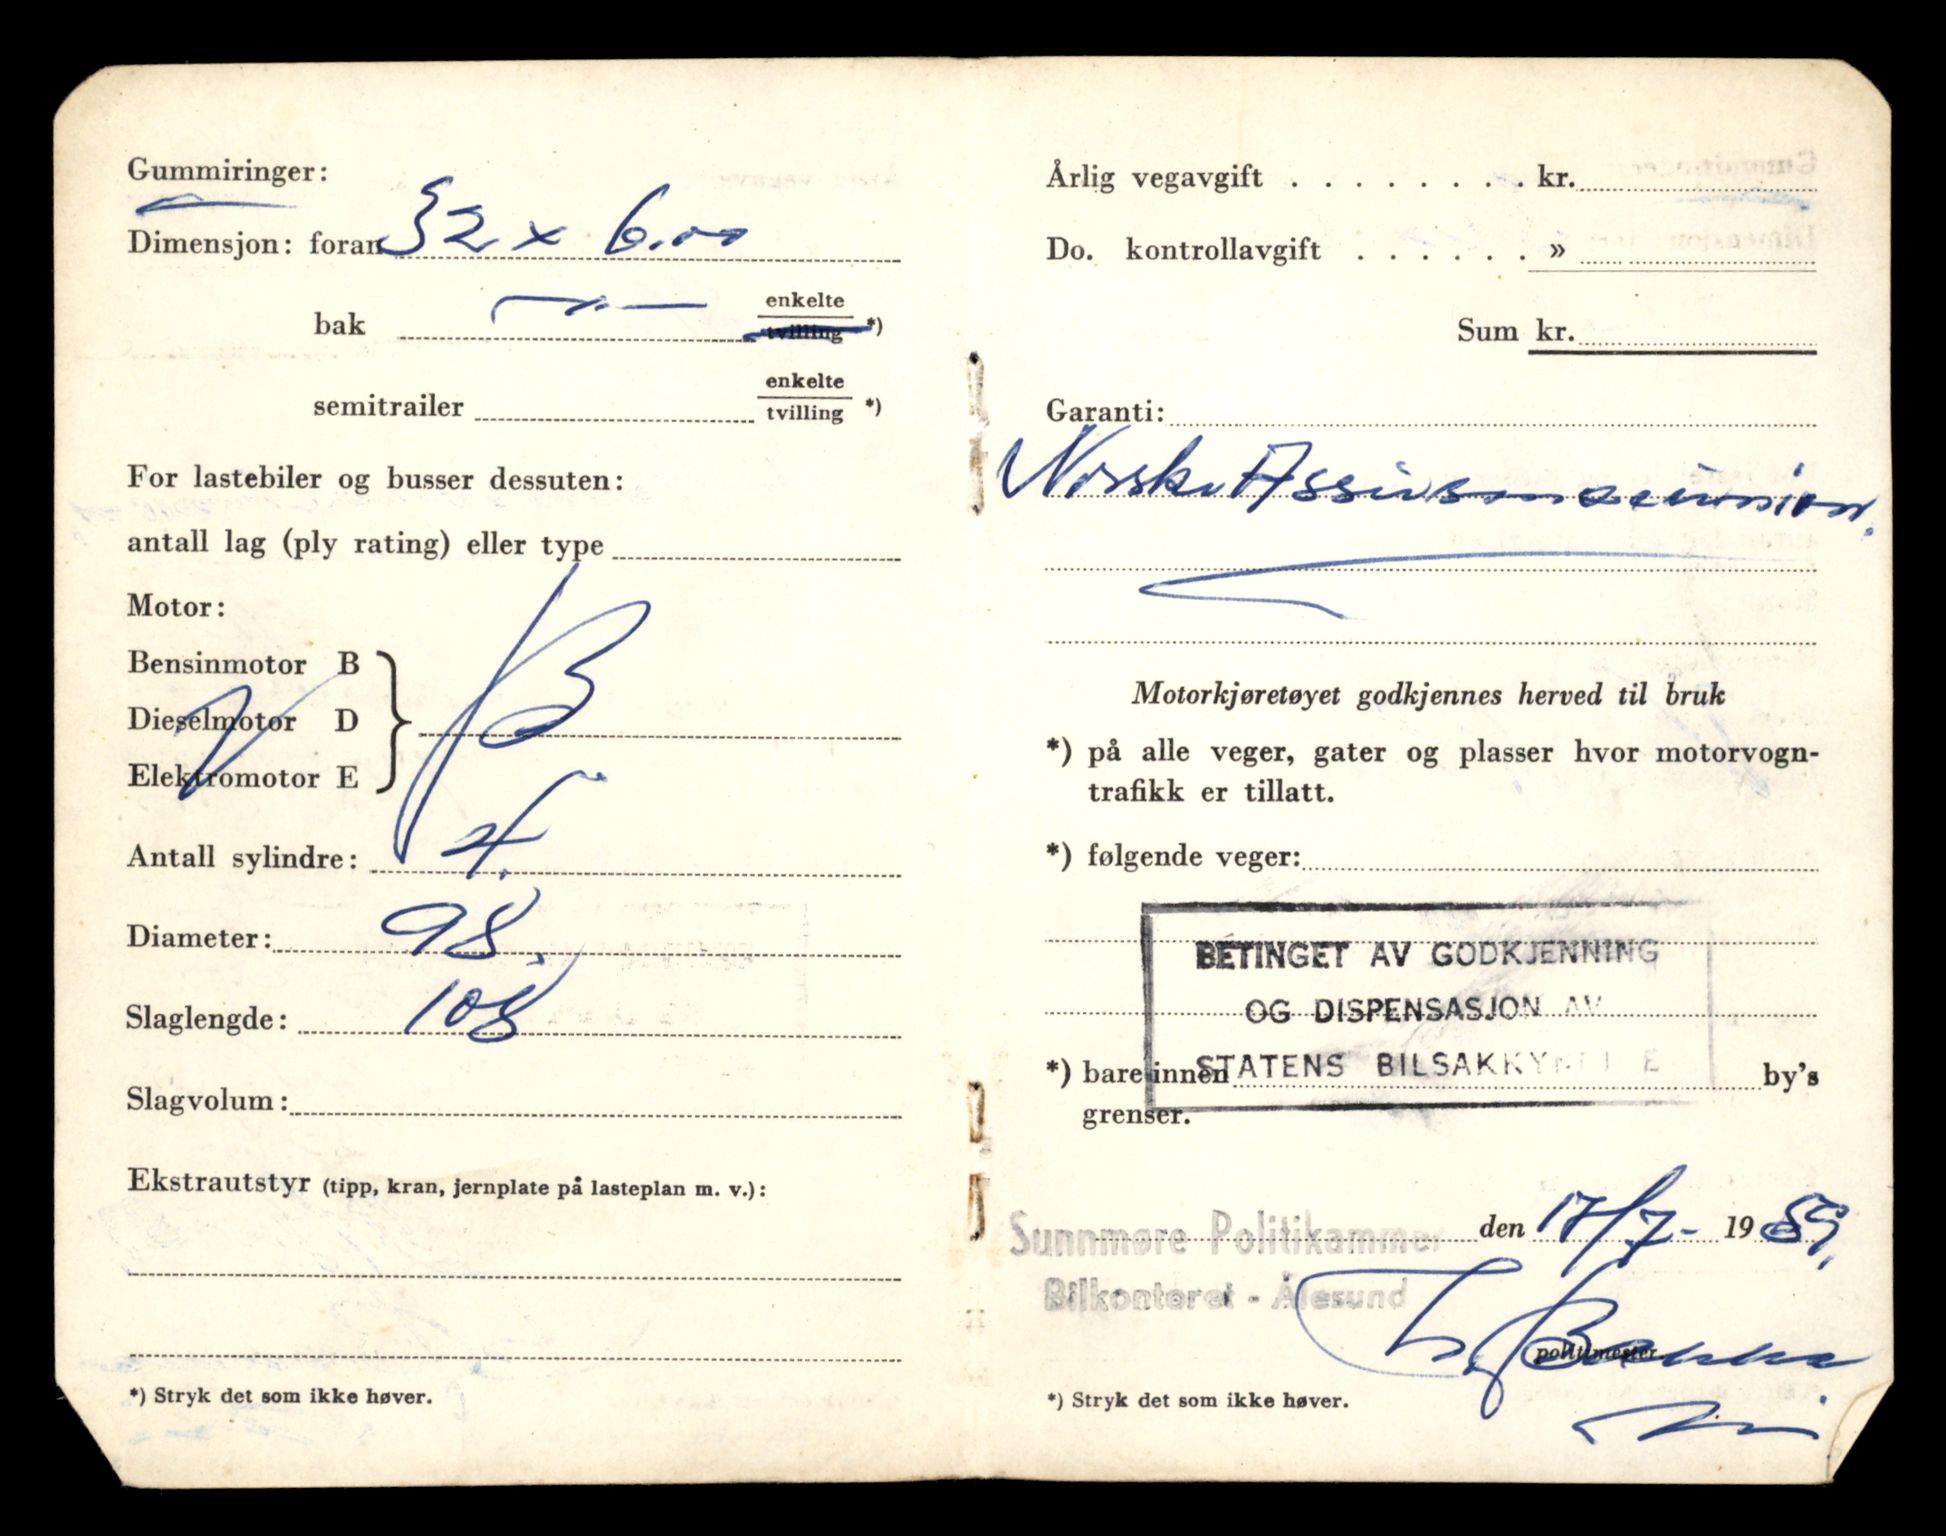 Gummiringer:
Dimensjon: foran 32 x 6.00
bak — " — enkelte
tvilling *)
semitrailer enkelte
tvilling *)
For lastebiler og busser dessuten:
antall lag (ply rating) eller type
Motor:
Bensinmotor B
Dieselmotor D
B
Elektromotor E
Antall sylindre: 4.
Diameter: 98.
Slaglengde: 108
Slagvolum:
Ekstrautstyr (tipp, kran, jernplate på lasteplan m. v.):
*) Stryk det som ikke høver.
Årlig vegavgift . . . . . . . . kr.
Do. kontrollavgift . . . . . . »
Sum kr.
Garanti:
Norske Assuranseunion.
Motorkjøretøyet godkjennes herved til bruk
*) på alle veger, gater og plasser hvor motorvogn-
trafikk er tillatt.
*) følgende veger:
BETINGET AV GODKJENNING
OG DISPENSASJON AV
STATENS BILSAKKYNDIGE
*) bare innen by's
grenser.
Sunnmøre Politikammer den 17/7- 1959.
Bilkontoret - Ålesund
politimester.
*) Stryk det som ikke høver.